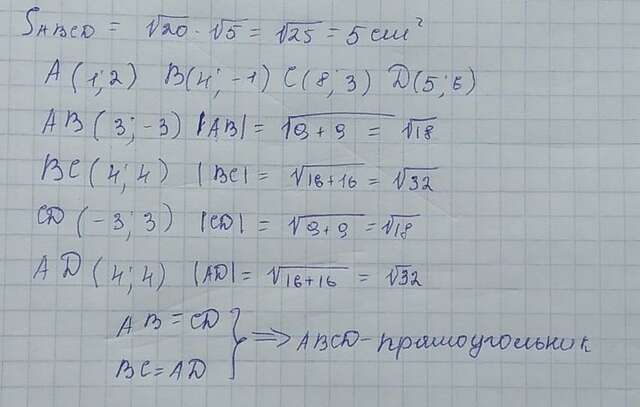 S_ABCD = √20 · √5 = √25 = 5 cm²
A(1;2) B(4;-1) C(8;3) D(5;6)
AB(3;-3) |AB| = √9+9 = √18
BC(4;4) |BC| = √16+16 = √32
CD(-3;3) |CD| = √9+9 = √18
AD(4;4) |AD| = √16+16 = √32
AB=CD
BC=AD
} ⇒ ABCD-прямоугольник